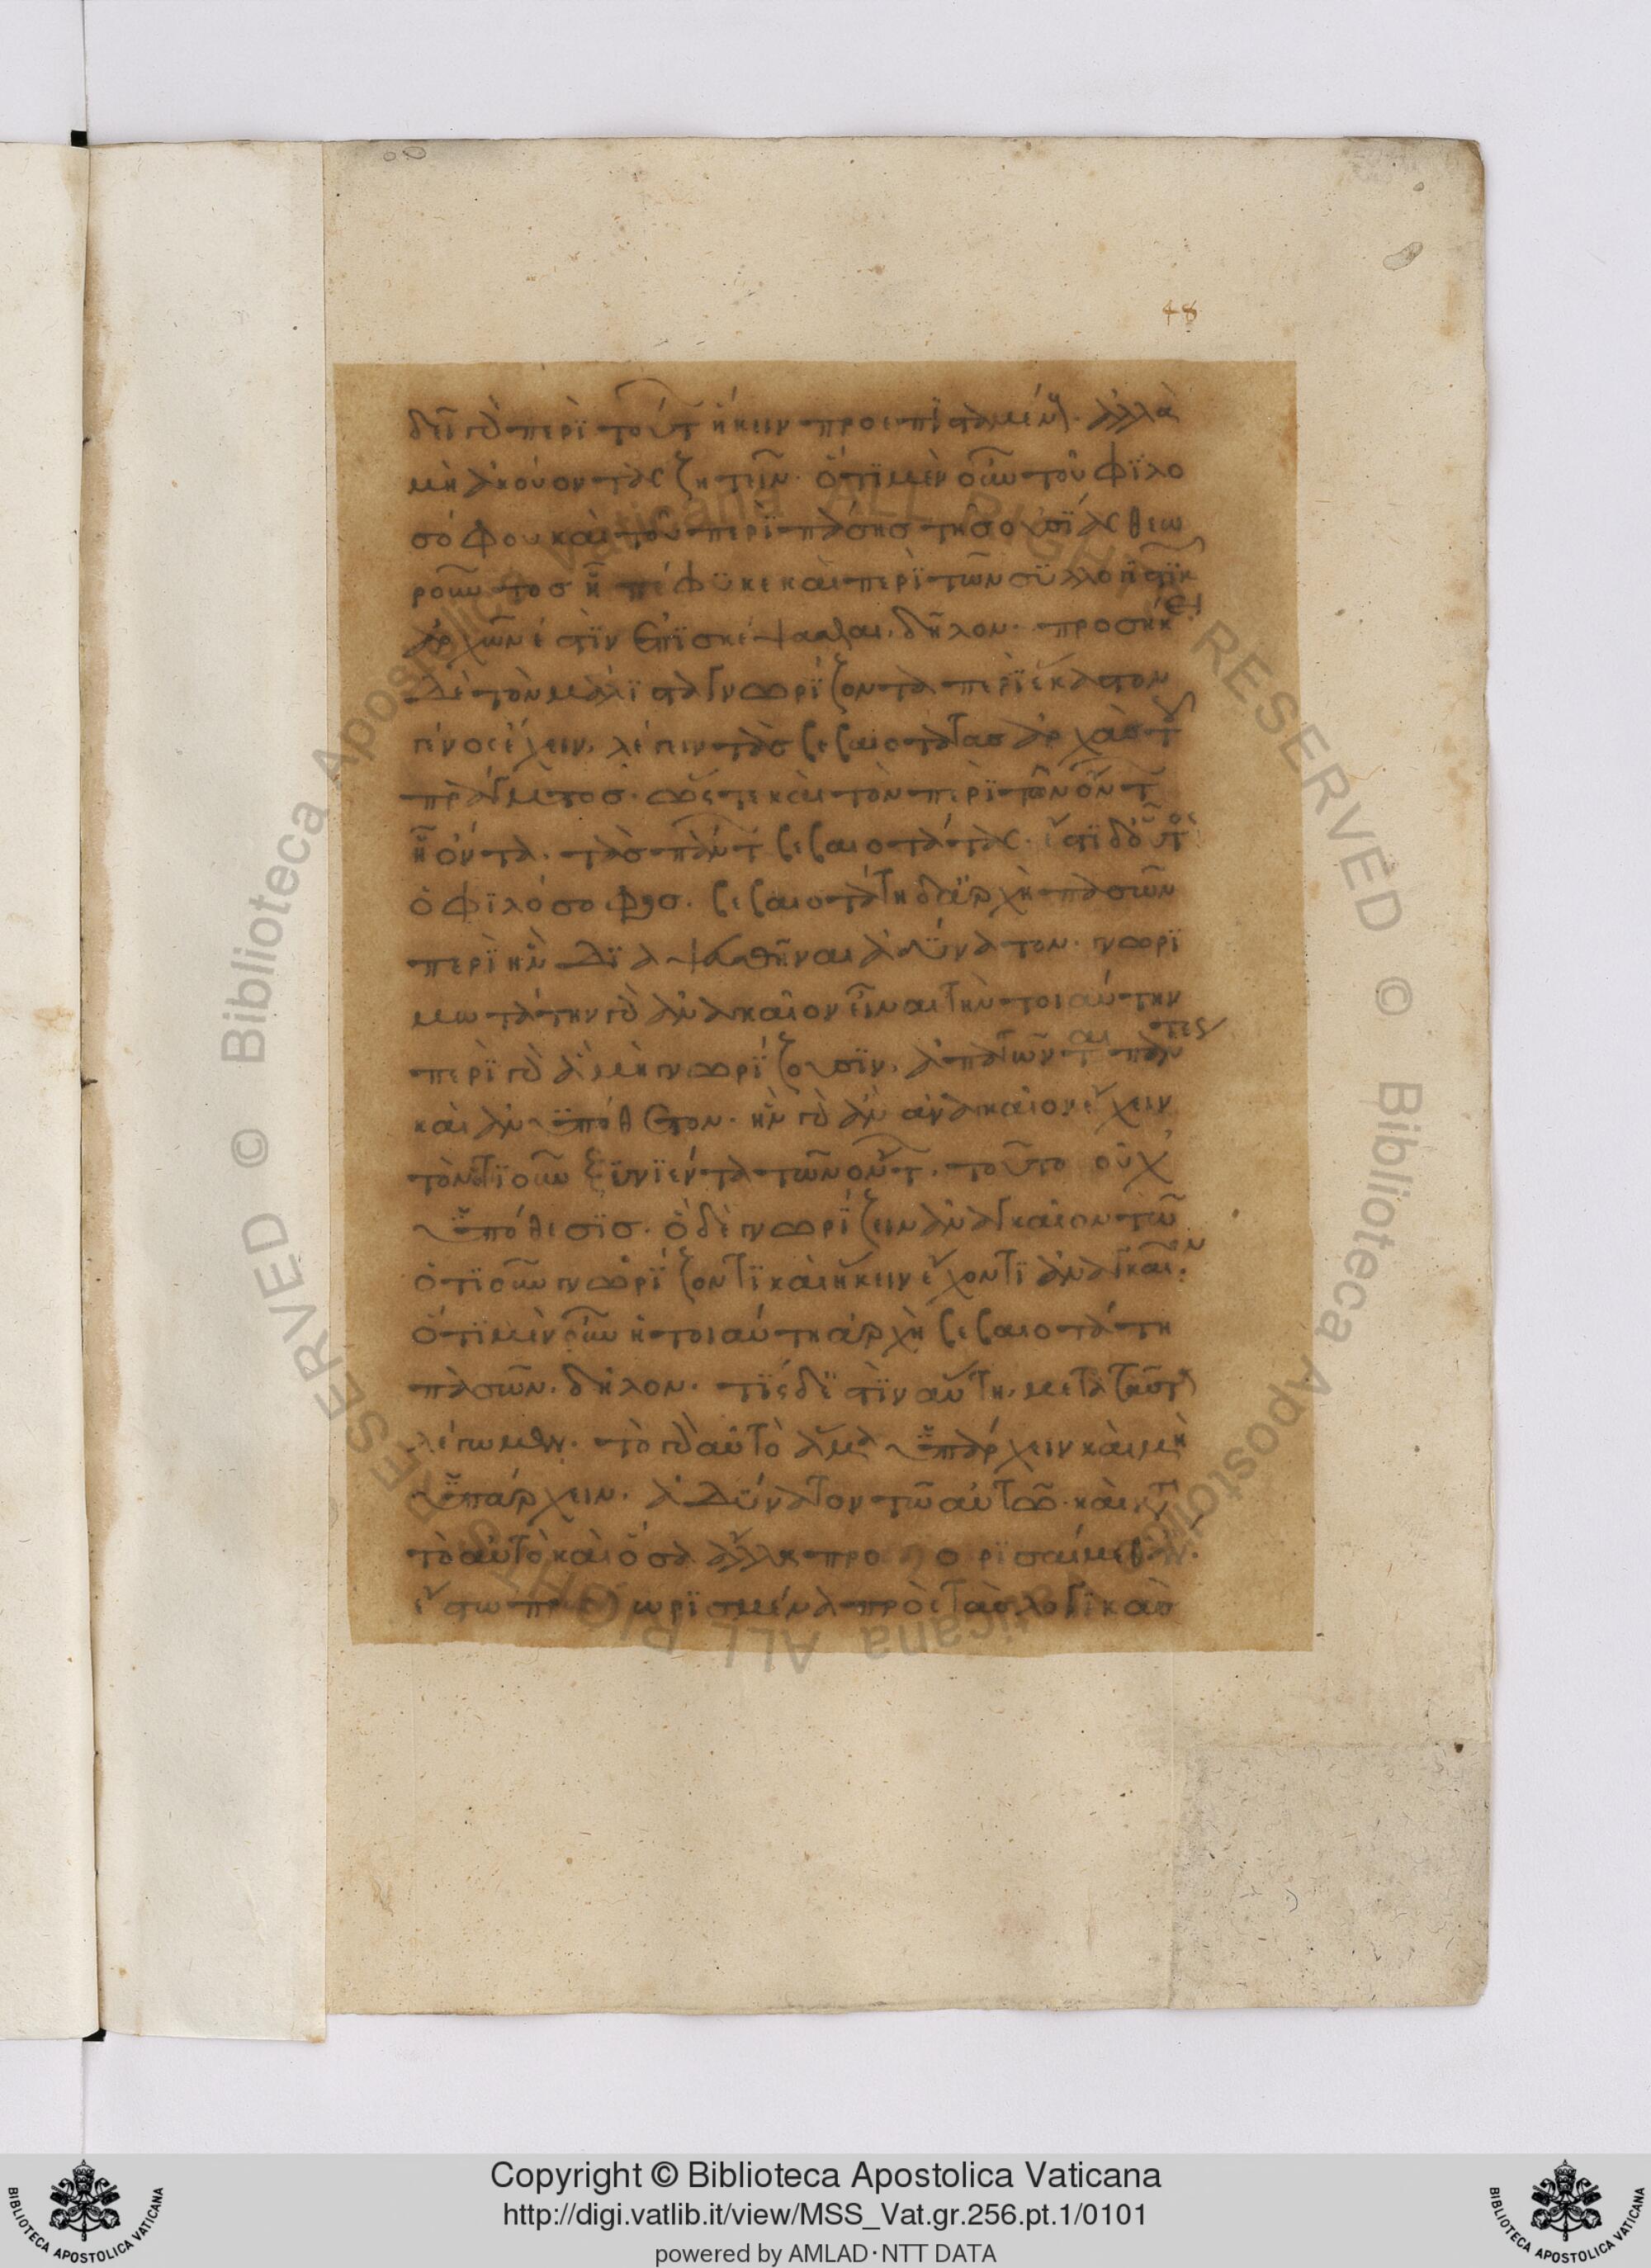 48
δεῖ γὰρ περὶ τούτων ἥκειν προεπισταμένους. ἀλλὰ
μὴ ἀκούοντας ζητεῖν. ὅτι μὲν οὖν τοῦ φιλο
σόφου καὶ τοῦ περὶ πάσης τῆς οὐσίας θεω
ροῦντος ᾗ πέφυκε καὶ περὶ τῶν συλλογιστικῶν
ἀρχῶν ἐστὶν ἐπισκέψασθαι, δῆλον. προσήκει
δὲ τὸν μάλιστα γνωρίζοντα περὶ ἕκαστον
γένος ἔχειν, λέγειν τὰς βεβαιοτάτας ἀρχὰς τοῦ
πράγματος. ὥστε καὶ τὸν περὶ τῶν ὄντων
ᾗ ὄντα. τὰς πάντων βεβαιοτάτας. ἔστι δ' οὗτος
ὁ φιλόσοφος. βεβαιοτάτη δ' ἀρχὴ πασῶν
περὶ ἣν διαψευσθῆναι ἀδύνατον. γνωρι
μωτάτην γὰρ ἀναγκαῖον εἶναι τὴν τοιαύτην
περὶ γὰρ ἃ μὴ γνωρίζουσιν, ἀπατῶνται πάντες
καὶ ἀνυπόθετον. ἣν γὰρ ἀναγκαῖον ἔχειν
τὸν ὁτιοῦν ξυνιέντα τῶν ὄντων. τοῦτο οὐχ
ὑπόθεσις. ὃ δὲ γνωρίζειν ἀναγκαῖον τῶ
ὁτιοῦν γνωρίζοντι καὶ ἥκειν ἔχοντι ἀναγκαῖον.
ὅτι μὲν οὖν ἡ τοιαύτη ἀρχὴ βεβαιοτάτη
πασῶν. δῆλον. τίς δ' ἔστιν αὕτη. μετὰ ταῦτα
λέγωμεν. τὸ γὰρ αὐτὸ ἅμα ὑπάρχειν καὶ μὴ
ὑπάρχειν. ἀδύνατον τῶ αὐτῶ. καὶ κατὰ
τὸ αὐτὸ καὶ ὅσα ἄλλα προσδιορισαίμεθ' ἄν.
ἔστω προσδιωρισμένα πρὸς τὰς λογικὰς
Copyright © Biblioteca Apostolica Vaticana
http://digi.vatlib.it/view/MSS_Vat.gr.256.pt.1/0101
powered by AMLAD·NTT DATA